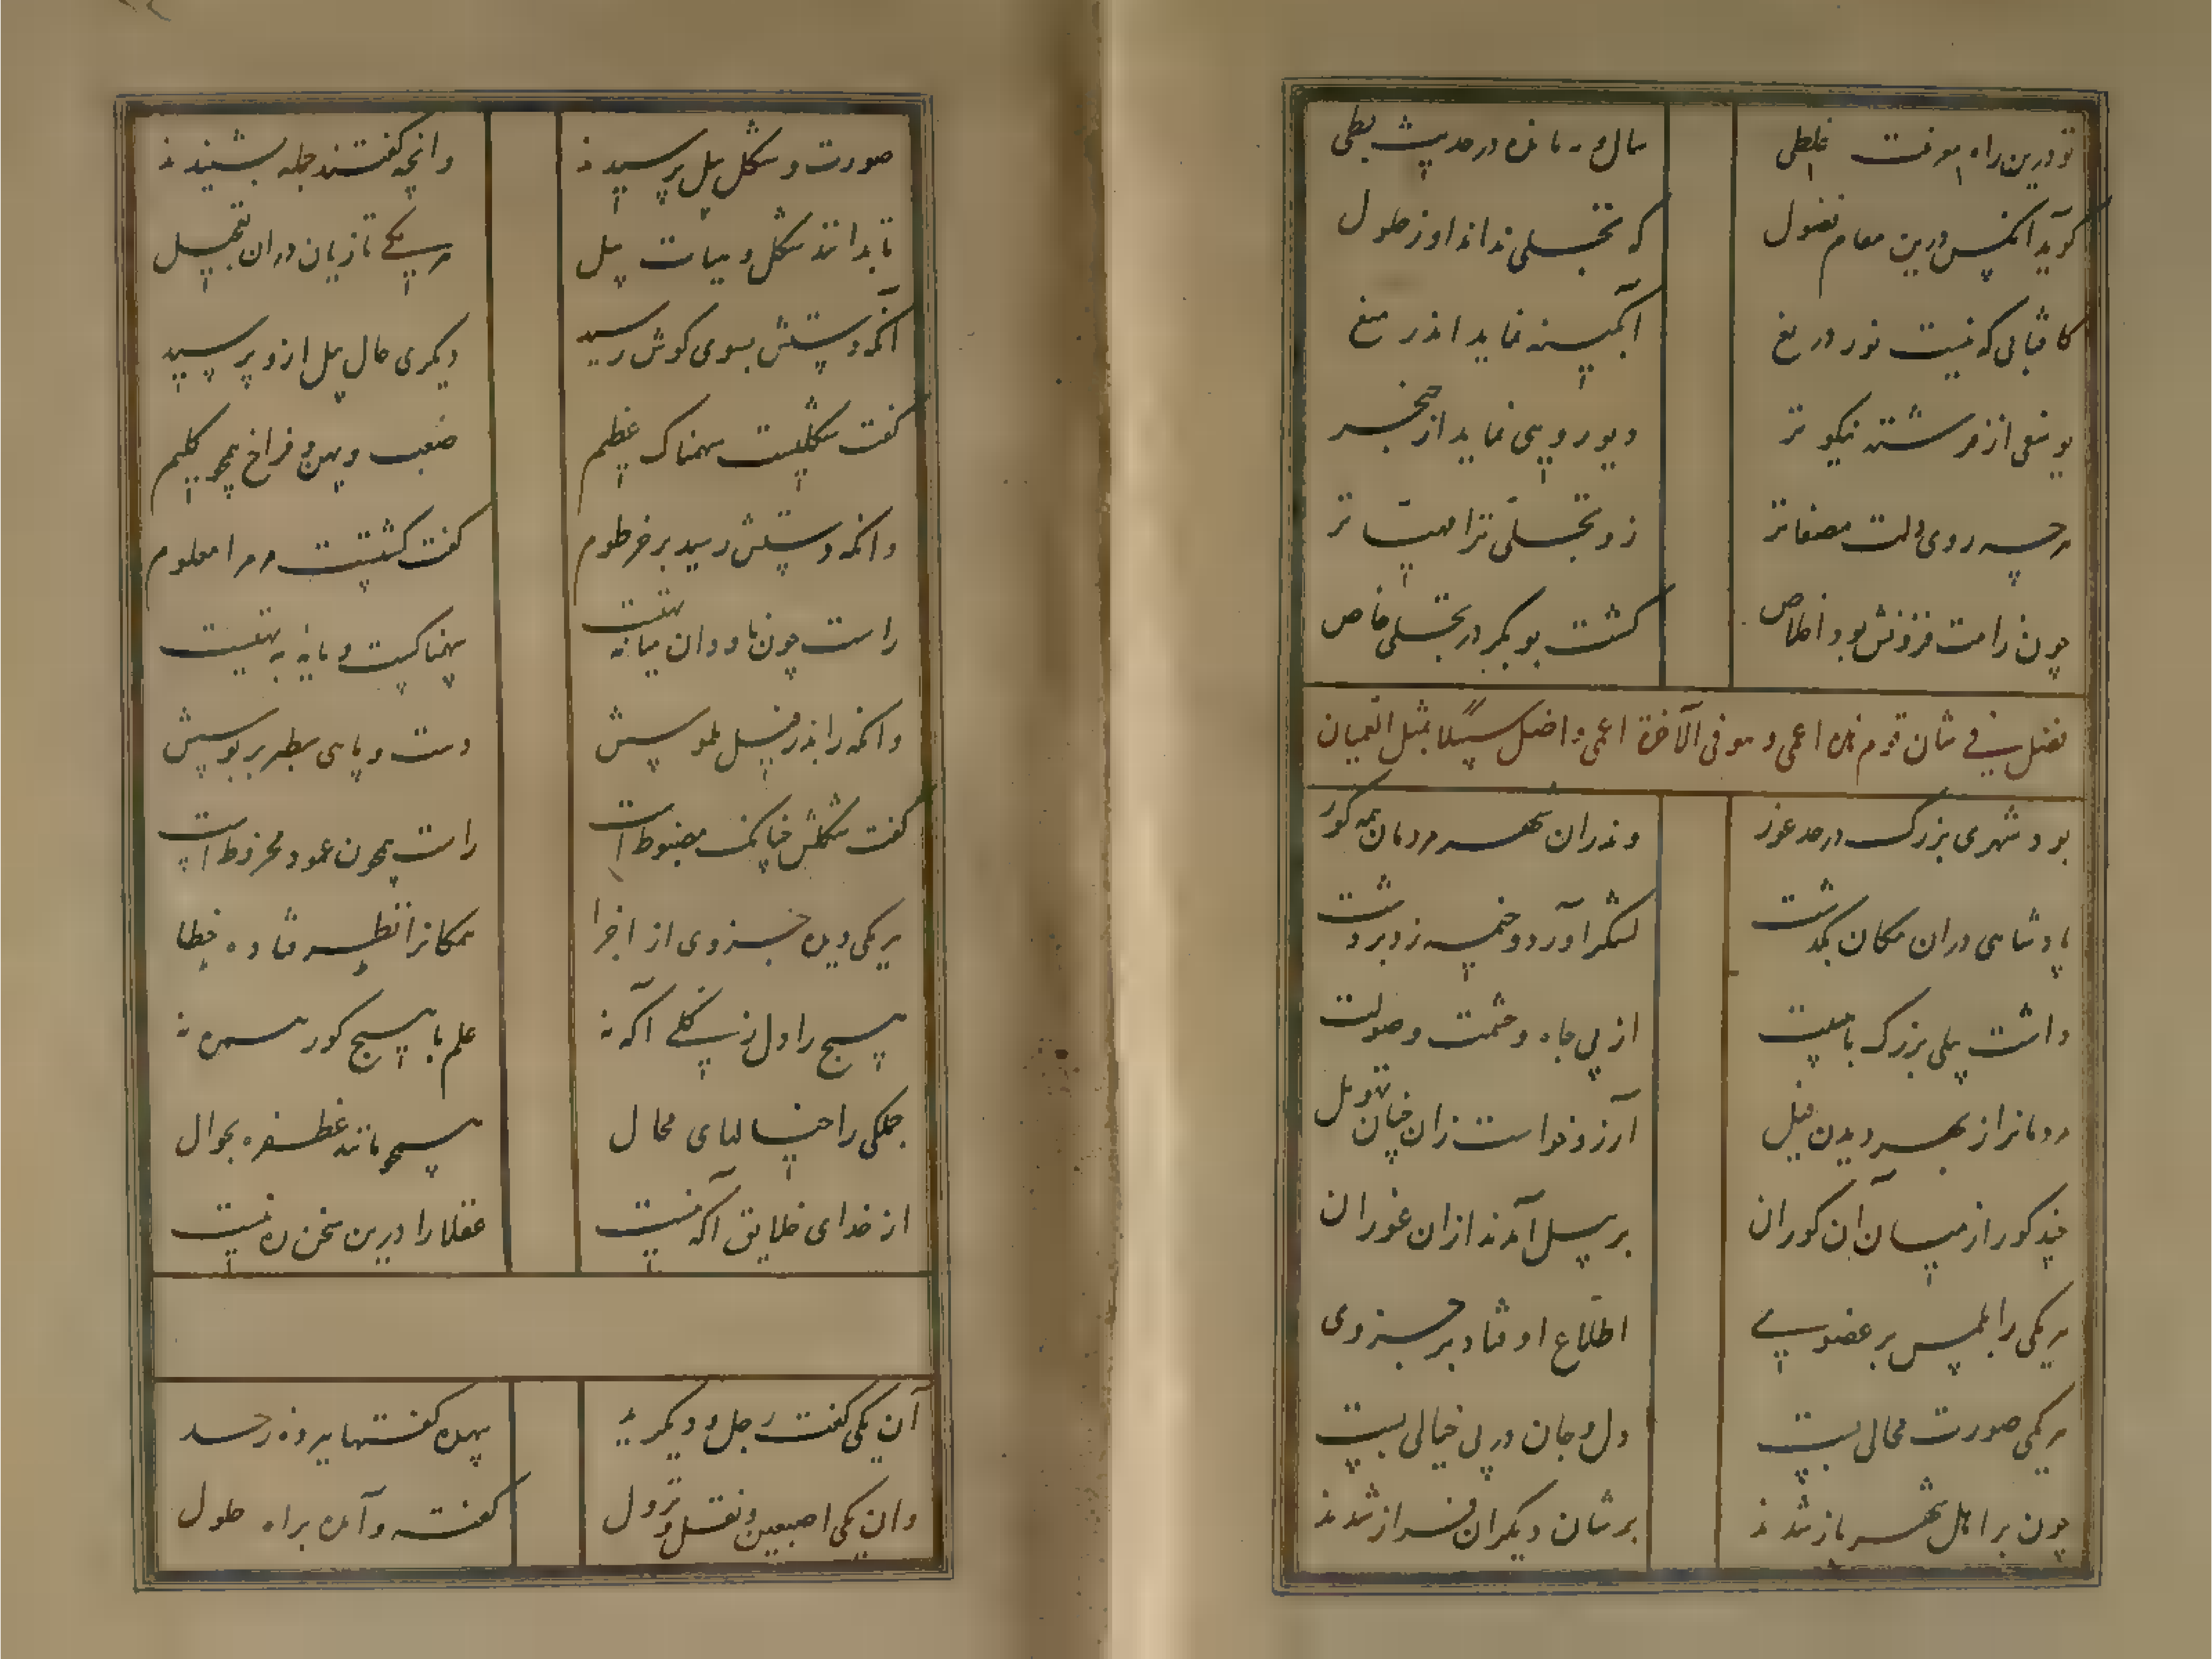 تو درین راه معرفت غلطی سال و مه مانده در حدیث بطی
گوید آنکس درین مقام فضول که تجلی نداند او ز حلول
کافتابی که نیست نور دریغ آبگینه نماید اندر میغ
یوسفی از فرشته نیکوتر دیو رویی نماید از خنجر
هرچه روی دلت مصفاتر زو تجلی ترا مهیاتر
چون ز امت فزونش بود اخلاص گشت بوبکر در تجلی خاص
فصل فی شان قوم هذه اعمی و هو فی الآخرة اعمی و اضل سبیلا بمثل العمیان
بود شهری بزرگ در حد غور وندران شهر مردمان همه کور
پادشاهی دران مکان بگذشت لشکر آورد و خیمه زد بر دشت
داشت پیلی بزرگ با هیبت از پی جاه و حشمت و صولت
مردمانرا ز بهر دیدن فیل آرزو خواست زان چنان تهویل
چند کور از میان آن کوران بر پیل آمدند ازان عوران
هر یکی را بلمس بر عضویی اطلاع اوفتاد بر جزوی
هر یکی صورت محالی بست دل و جان در پی خیالی بست
چون بر اهل شهر باز شدند برشان دیگران فراز شدند
صورت و شکل پیل پرسیدند وانچه گفتند جمله بشنیدند
تا بدانند شکل و هیات پیل هر یکی تازیان دران تعجیل
آنکه دستش بسوی گوش رسید دیگری حال پیل ازو پرسید
گفت شکلیست سهمناک عظیم صعب و پهن و فراخ همچو گلیم
وانکه دستش رسید بر خرطوم گفت گشتست مر مرا معلوم
راست چون ناودان میانه تهیست سهمناکست و مایه تبهیست
وانکه را بد ز فیل ملموسش دست و پای سطبر بر بوسش
گفت شکلش چنانک مضبوط است راست همچون عمود مخروط است
هر یکی دیده جزوی از اجزا همگانرا نظر فتاده خطا
هیچ را دل ز کلی آگه نه علم با هیچ کور همره نه
جملگی را خیالهای محال هیچو مانند غطفره بجوال
از خدای خلایق آگه نیست عقلا را درین سخن ره نیست
آن یکی گفت رجل و دیگر ید بیهده گفتها برده ز حد
وان یکی اصبعین و نقل و نزول گفته و آمده براه حلول